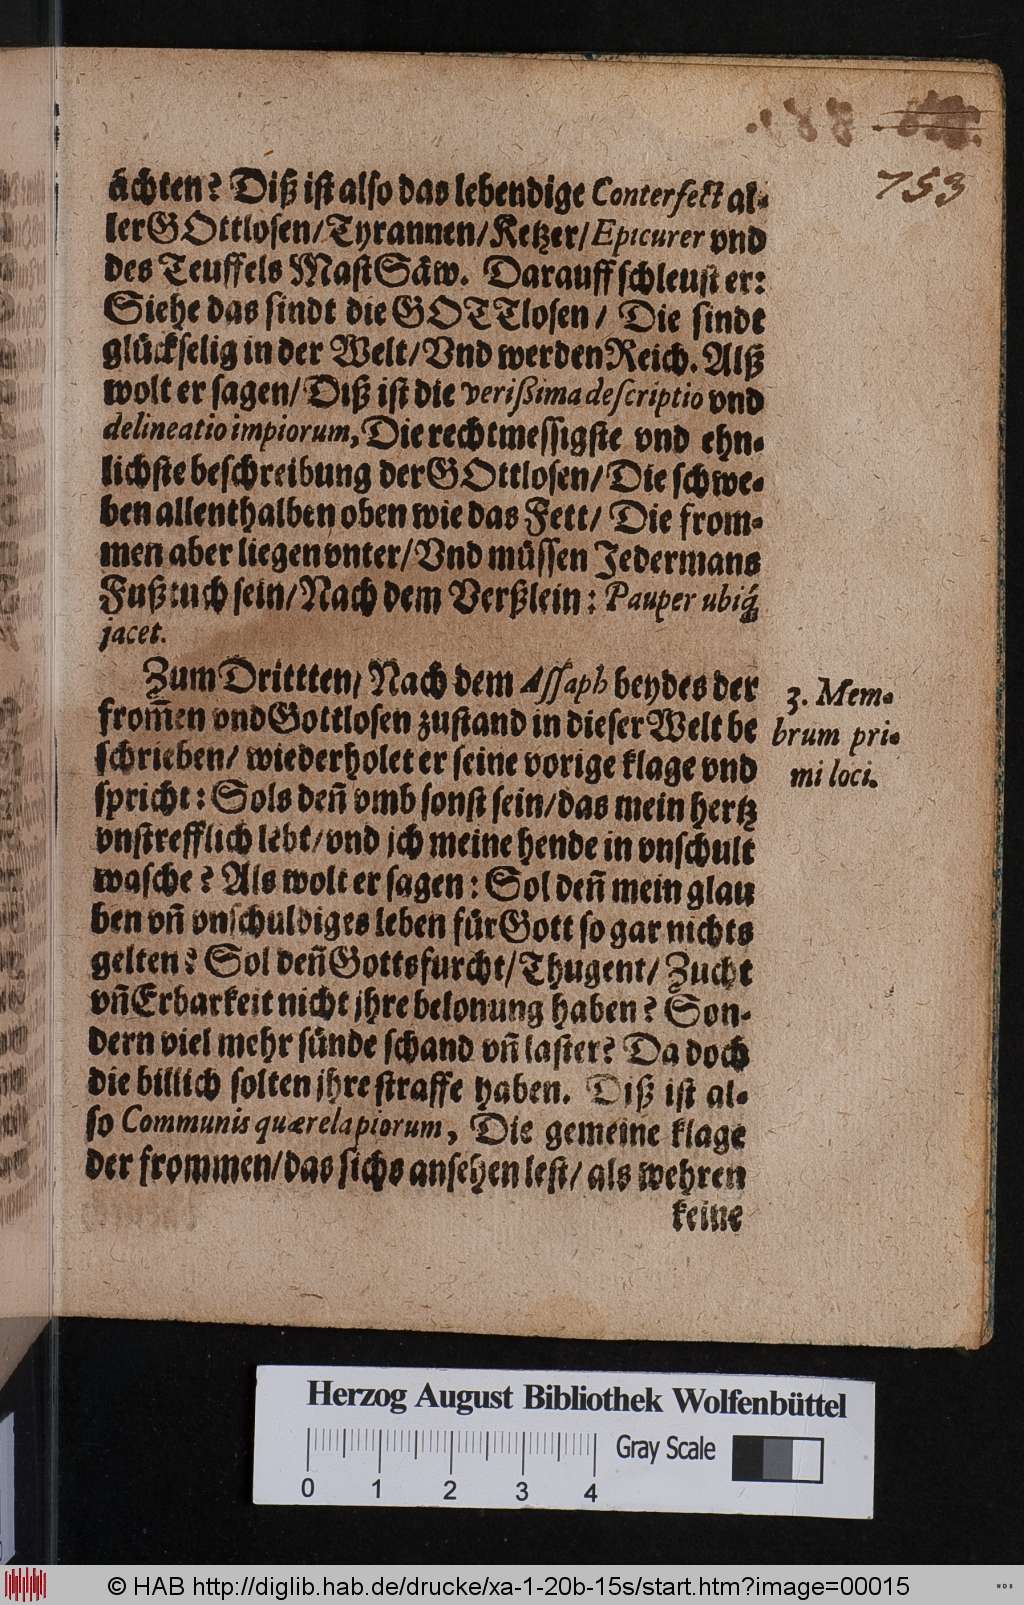 753
ächten? Diß ist also das lebendige Conterfect al-
ler GOttlosen/ Tyrannen/ Ketzer/ Epicurer vnd
des Teuffels Mast Säw. Darauff schleust er:
Siehe das sindt die GOTTlosen/ Die sindt
glückselig in der Welt/ Vnd werden Reich. Alß
wolt er sagen/ Diß ist die verißima descriptio vnd
delineatio impiorum, Die rechtmessigste vnd ehn-
lichste beschreibung der GOttlosen/ Die schwe-
ben allenthalben oben wie das Fett/ Die from-
men aber liegen vnter/ Vnd müssen Jedermans
Fußtuch sein/ Nach dem Verßlein: Pauper ubiq́;
jacet.
Zum Drittten/ Nach dem Assaph beydes der
from̃en vnd Gottlosen zustand in dieser Welt be
schrieben/ wiederholet er seine vorige klage vnd
spricht: Sols deñ vmb sonst sein/ das mein hertz
vnstrefflich lebt/ vnd jch meine hende in vnschult
wasche? Als wolt er sagen: Sol deñ mein glau
ben vñ vnschuldiges leben für Gott so gar nichts
gelten? Sol deñ Gottsfurcht/ Thugent/ Zucht
vñ Erbarkeit nicht jhre belonung haben? Son-
dern viel mehr sünde schand vñ laster? Da doch
die billich solten jhre straffe haben. Diß ist al-
so Communis quærela piorum, Die gemeine klage
der frommen/ das sichs ansehen lest/ als wehren
keine
3. Mem-
brum pri-
mi loci.
Herzog August Bibliothek Wolfenbüttel
Gray Scale
0 1 2 3 4
© HAB http://diglib.hab.de/drucke/xa-1-20b-15s/start.htm?image=00015